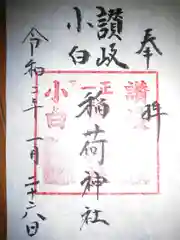 奉拝
讃岐
小白
稲荷神社
令和二年一月二十六日
讃
正一
小白